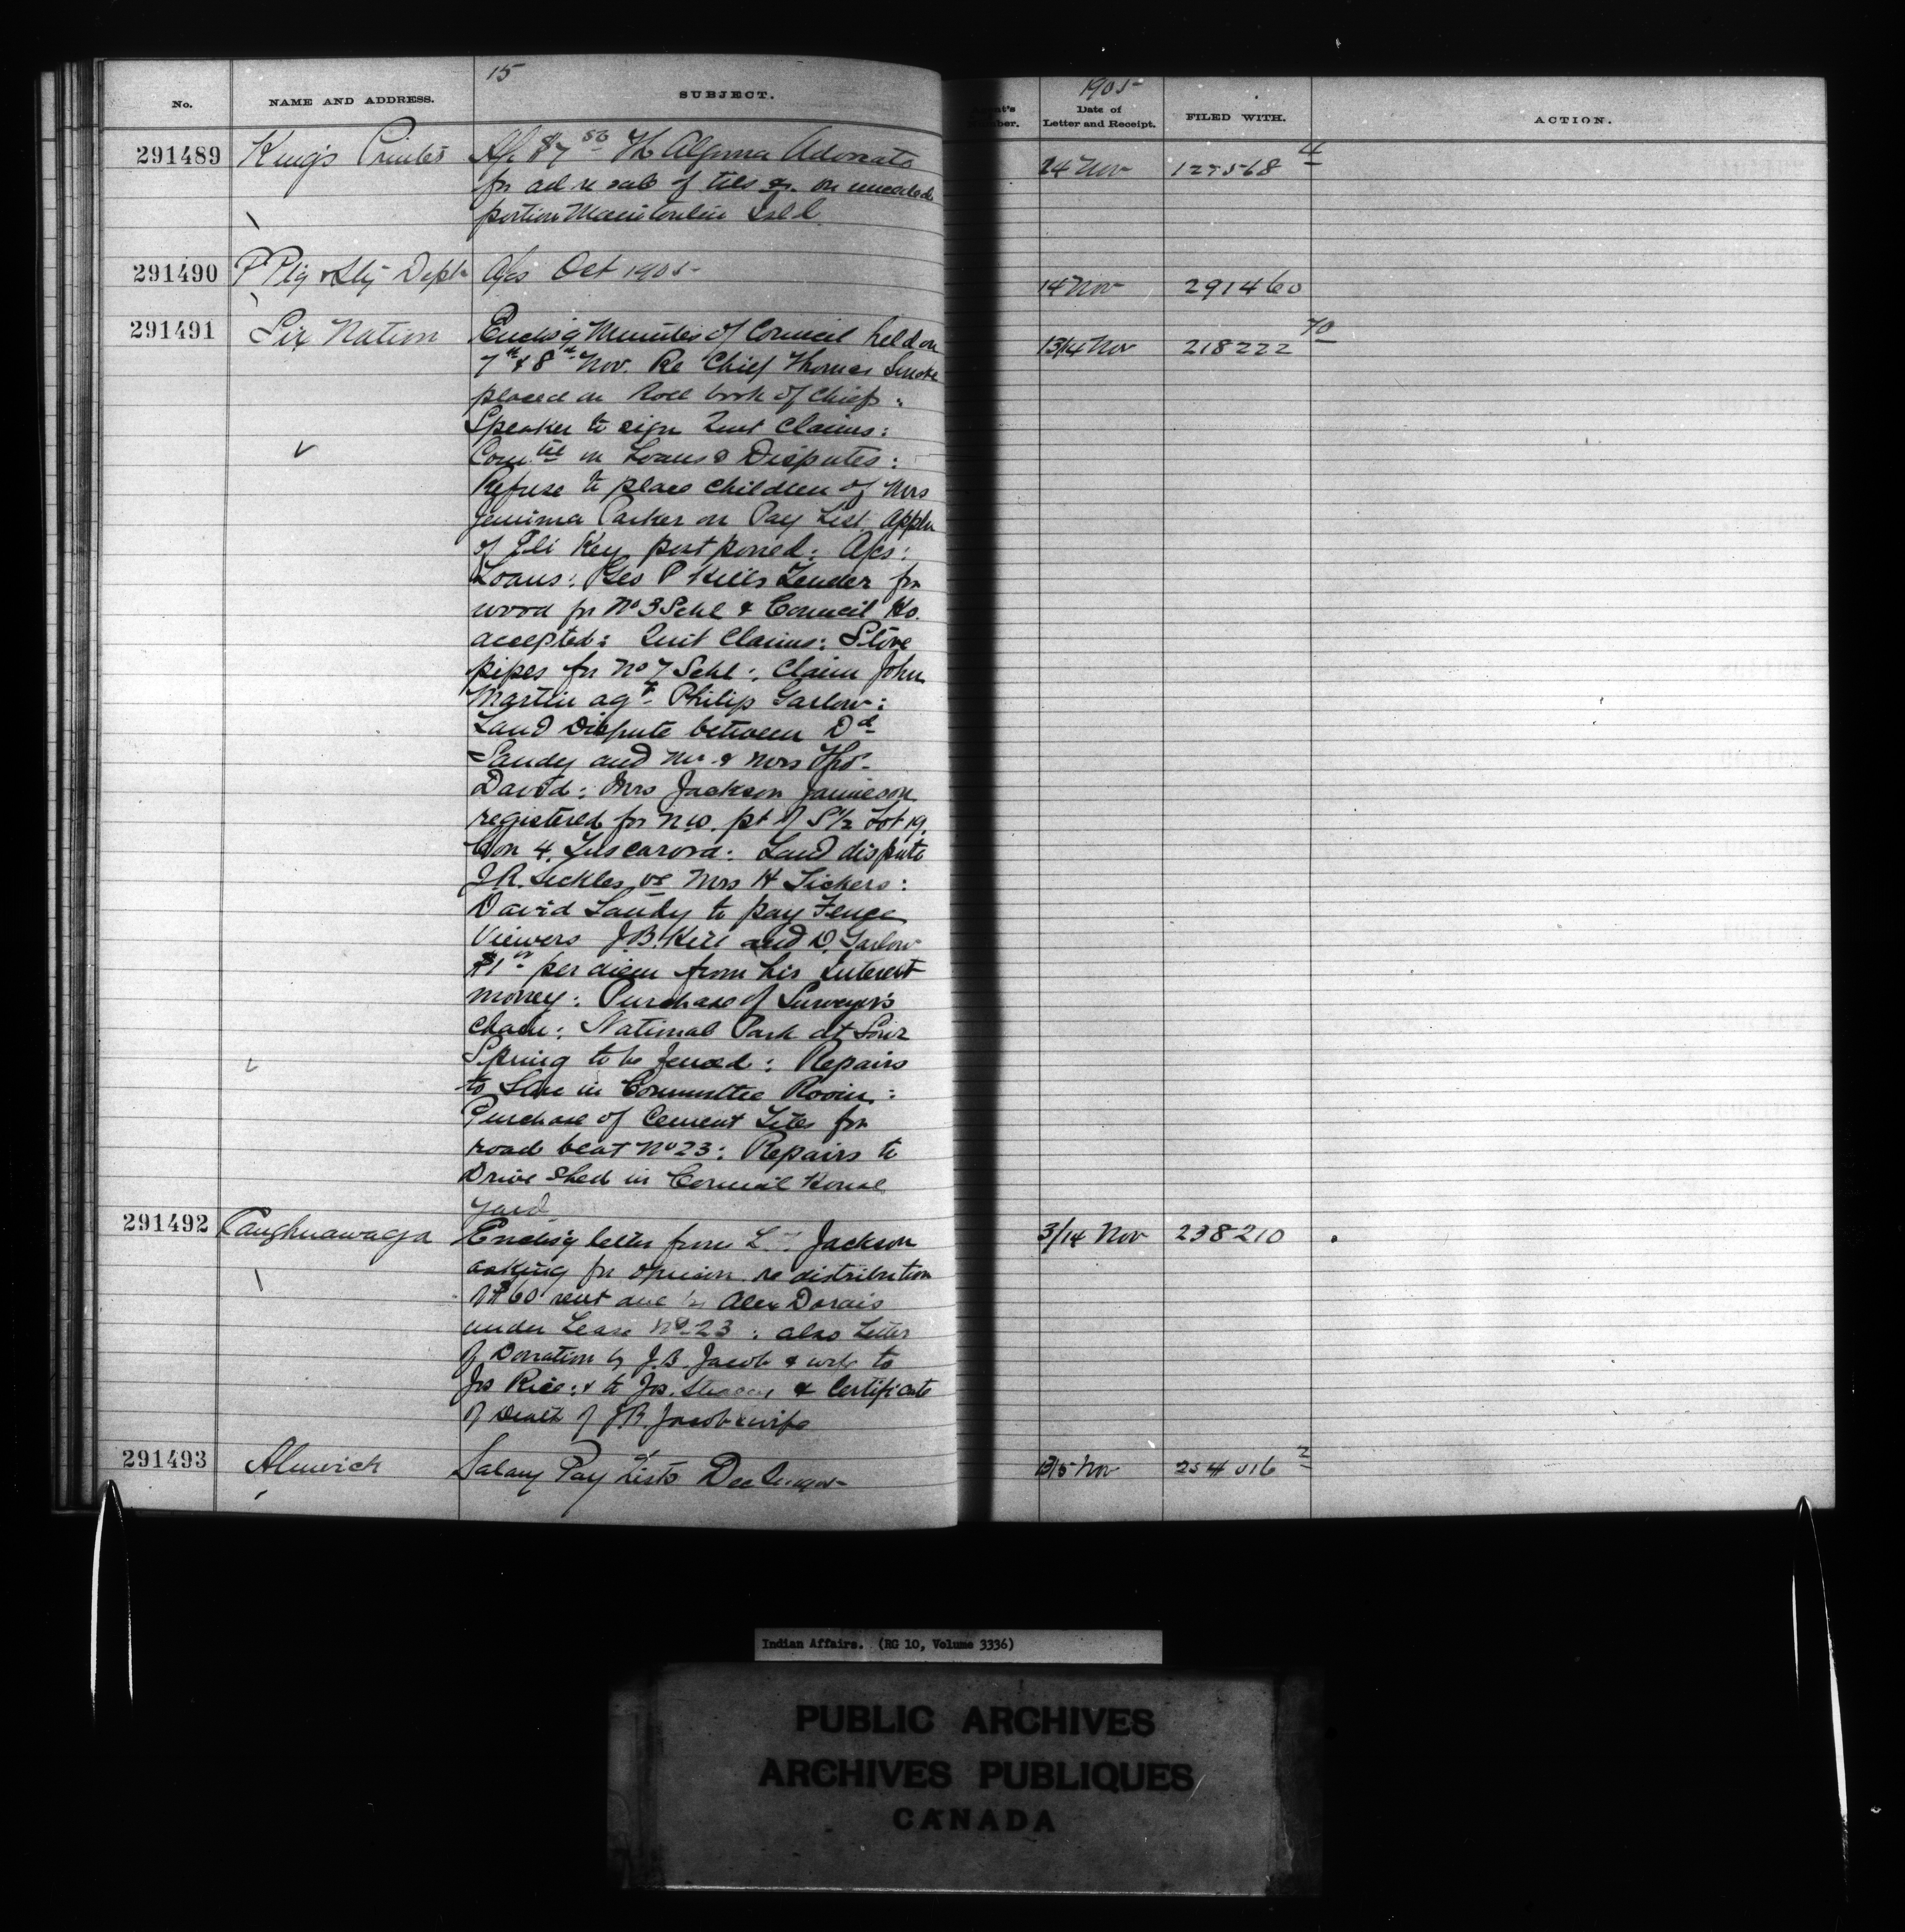 15
1905
No. NAME AND ADDRESS. SUBJECT. Date of Letter and Receipt. FILED WITH. ACTION.
291489 King's Printer A/c $7 50 The Algoma Advocate 24 Nov 127568 4
for ad re sale of tbs &c. on unceded
portion Manitoulin Isld
291490 P Ptg & Sty Dept A/cs Oct 1905 14 Nov 291460
291491 Six Nation Enclos'g Minutes of Council held on 13/14 Nov 218222 70
7th & 8th Nov. Re Chief Thomas Smoke
placed on Roll book of Chiefs :
Speaker to sign Quit Claims :
Comtee on Loans & Disputes :
Refuse to place children of Mrs
Jemima Parker on Pay List. Appln
of Eli Key postponed : A/cs :
Loans : Geo P Hill's Tender for
wood for No 3 Schl & Council Ho.
accepted : Quit Claims : Stove
pipes for No 7 Schl : Claim John
Martin agt Philip Garlow :
Land Dispute between Dd
Sandy and Mr & Mrs Thos
David : Mrs Jackson Jamieson
registered for N.W. pt of S 1/2 Lot 19
Con 4, Tuscarora : Land dispute
J.R. Lickles vs Mrs H Lickers :
David Sandy to pay Fence
Viewers J.B. Hill and D. Garlow
$1 00 per diem from his Interest
money : Purchase of Surveyor's
chain : National Park at Sour
Spring to be fenced : Repairs
to in Committee Room :
Purchase of Cement Tiles for
road beat No 23 : Repairs to
Drive Shed in Council House
yard
291492 Caughnawaga Enclos'g letter from L. Jackson 3/14 Nov 238210
asking for opinion re distribution
of $60 rent due by Alex Dorais
under Lease No 23 : also Letter
of Donation by J.B. Jacob & wife to
Jos Rice : & to Jos. & Certificate
of Death of J.B. Jacob & wife
291493 Alnwick Salary Pay Lists Dec Qr. 1905 13/15 Nov 254016 2
Indian Affairs. (RG 10, Volume 3336)
PUBLIC ARCHIVES
ARCHIVES PUBLIQUES
CANADA